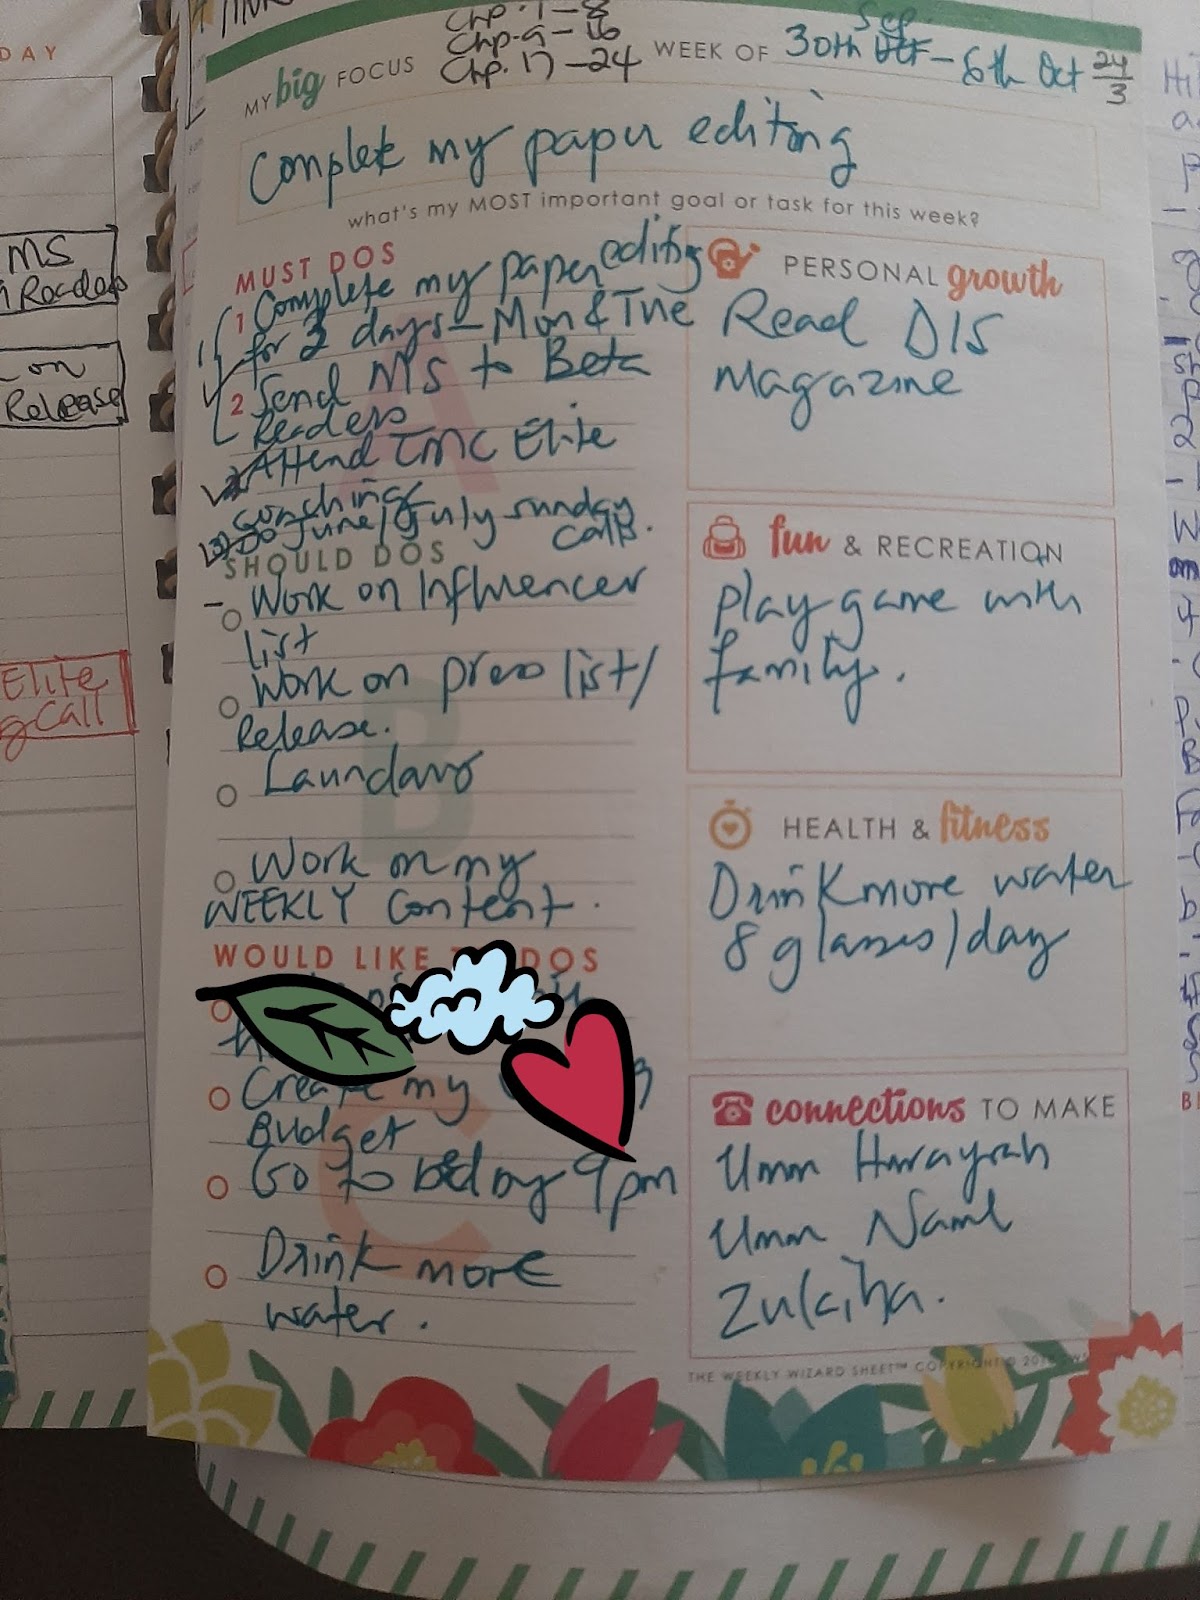 Chp. 1-8
Chp. 9-16
Chp. 17-24
Sep
MY big FOCUS
WEEK OF 30th Oct - 6th Oct
24
3
Complete my paper editing
what's my MOST important goal or task for this week?
MUST DOS
1 Complete my paper editing
for 2 days - Mon & Tue
2 Send MS to Beta
Readers
Attend TMC Elite
coaching
3) Do June/July sunday
calls.
SHOULD DOS
- Work on Influencer
list
Work on press list/
Release.
Work on my
WEEKLY Content.
WOULD LIKE DOS
Create my
Budget
Go to bed by 9pm
Drink more
water.
PERSONAL growth
Read DIS
Magazine
fun & RECREATION
Play game with
family.
HEALTH & fitness
Drink more water
8 glasses/day
connections TO MAKE
Umm Hurayrah
Umm
THE WEEKLY WIZARD SHEET™ COPYRIGHT ©
DAY
MS
Readers
on
Release
Elite
Call